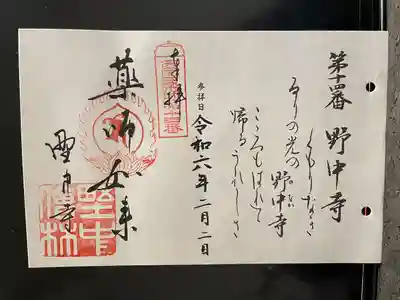 第十四番 野中寺
くもりなき
みのりの光の野中寺
こころもはれて
帰るうれしさ
参拝日
令和六年二月二日
奉拝
薬師如来
野中寺